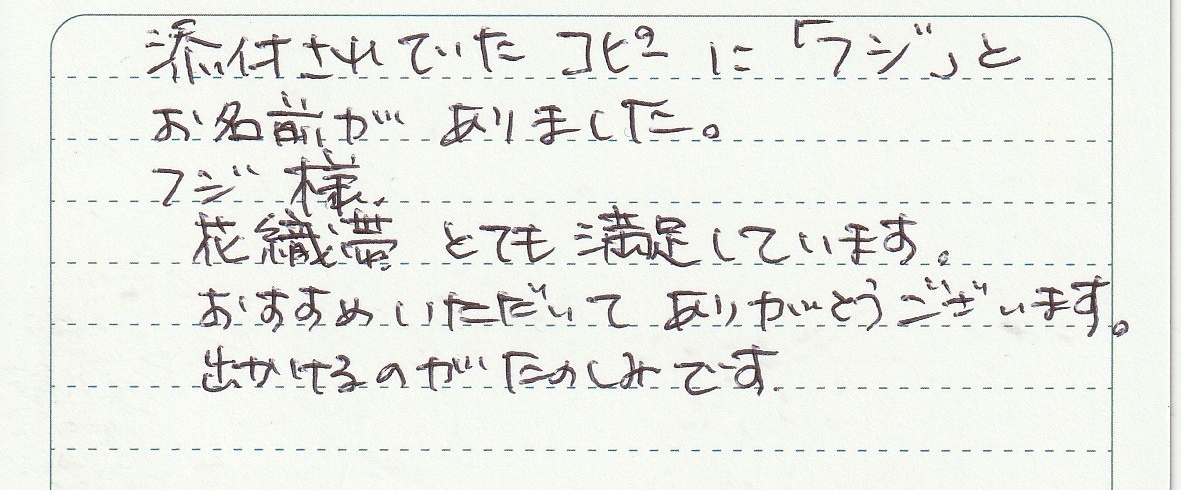 添付されていたコピーに「フジ」と
お名前がありました。
フジ様
花織帯とても満足しています。
おすすめいただいてありがとうございます。
出かけるのがたのしみです